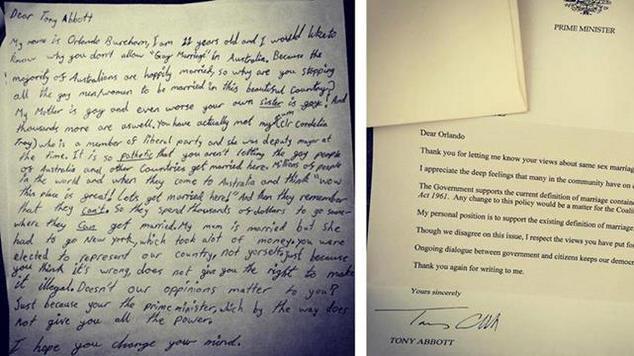 Dear Tony Abbott
My name is Orlando Burcham, I am 11 years old and I would like to
know why you don't allow "Gay Marriage" in Australia. Because the
majority of Australians are happily married, so why are you stopping
all the gay men/women to be married in this beautiful country?
My Mother is gay and even worse your own sister is gay! And
thousands more are aswell. You have actually met my mum (Clr Cordelia
Troy) who is a member of liberal party and she was deputy mayor at
the time. It is so pathetic that you aren't letting the gay people
of Australia and other countries get married here. Millions of people
in the world and when they come to Australia and think "wow
This place is great! Lets get married here!" And then they remember
that they can't. So they spend thousands of dollars to go some-
where they can get married. My mum is married but she
had to go New York, which took alot of money. you were
elected to represent our country, not yorself. Just because
you think it's wrong, does not give you the right to make
it illegal. Doesn't our oppinions matter to you?
Just because your the prime minister, wich by the way does
not give you all the power.
I hope you change your mind.
PRIME MINISTER
Dear Orlando
Thank you for letting me know your views about same sex marriag
I appreciate the deep feelings that many in the community have on
The Government supports the current definition of marriage contain
Act 1961. Any change to this policy would be a matter for the Coali
My personal position is to support the existing definition of marriag
Though we disagree on this issue, I respect the views you have put fo
Ongoing dialogue between government and citizens keeps our democ
Thank you again for writing to me.
Yours sincerely
TONY ABBOTT